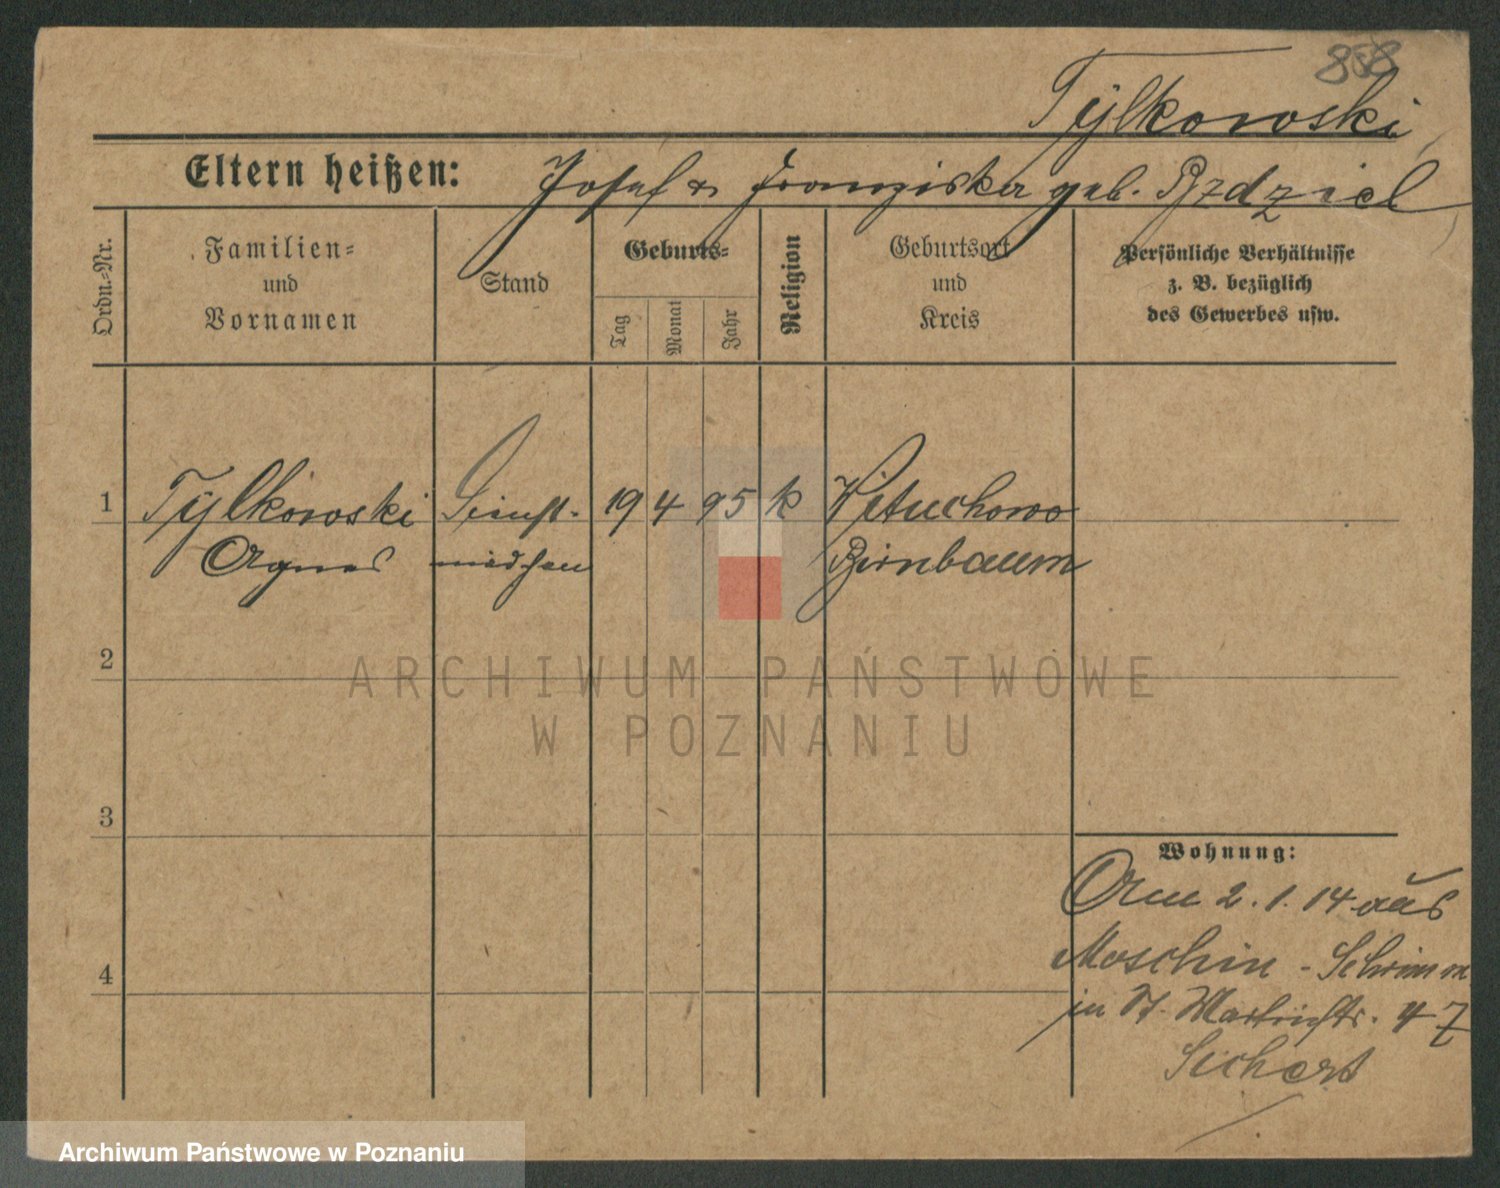 858
Tylkowski
Eltern heißen: Josef & Franziska geb. Rzdziel
Ordn.=Nr.
Familien=
und
Vornamen
Stand
Geburts=
Tag
Monat
Jahr
Religion
Geburtsort
und
Kreis
Persönliche Verhältnisse
z. B. bezüglich
des Gewerbes usw.
1 Tylkowski Dienst- 19 4 95 k Kituchowo
Agnes mädchen Birnbaum
2
ARCHIWUM PAŃSTWOWE
W POZNANIU
3
Wohnung:
Am 2.1.14 aus
Moschin - Schrimm
4
in St. Martinstr. 47
Sichert
Archiwum Państwowe w Poznaniu